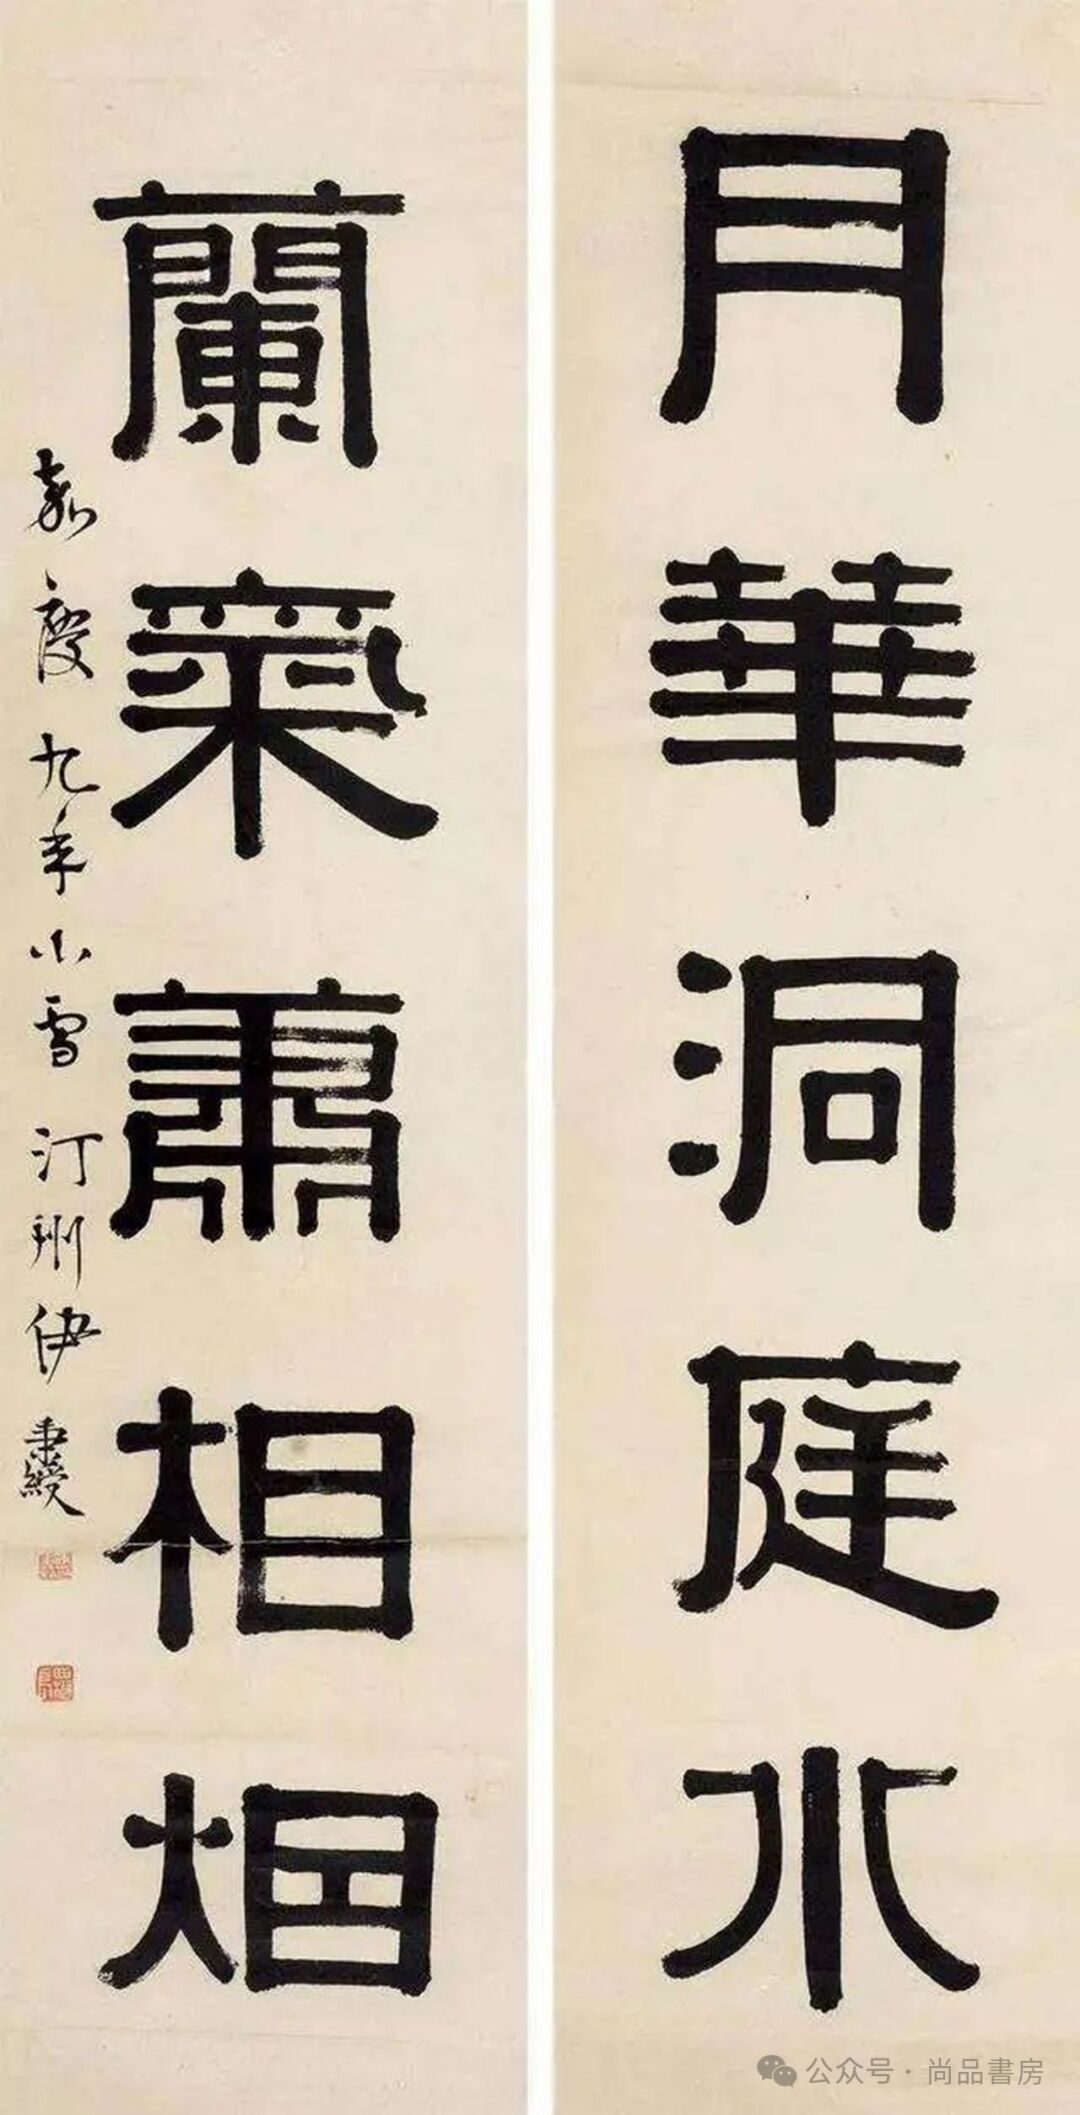 月華洞庭水
蘭氣蕭相烟
嘉慶九年小雪汀州伊秉綬
公众号·尚品書房